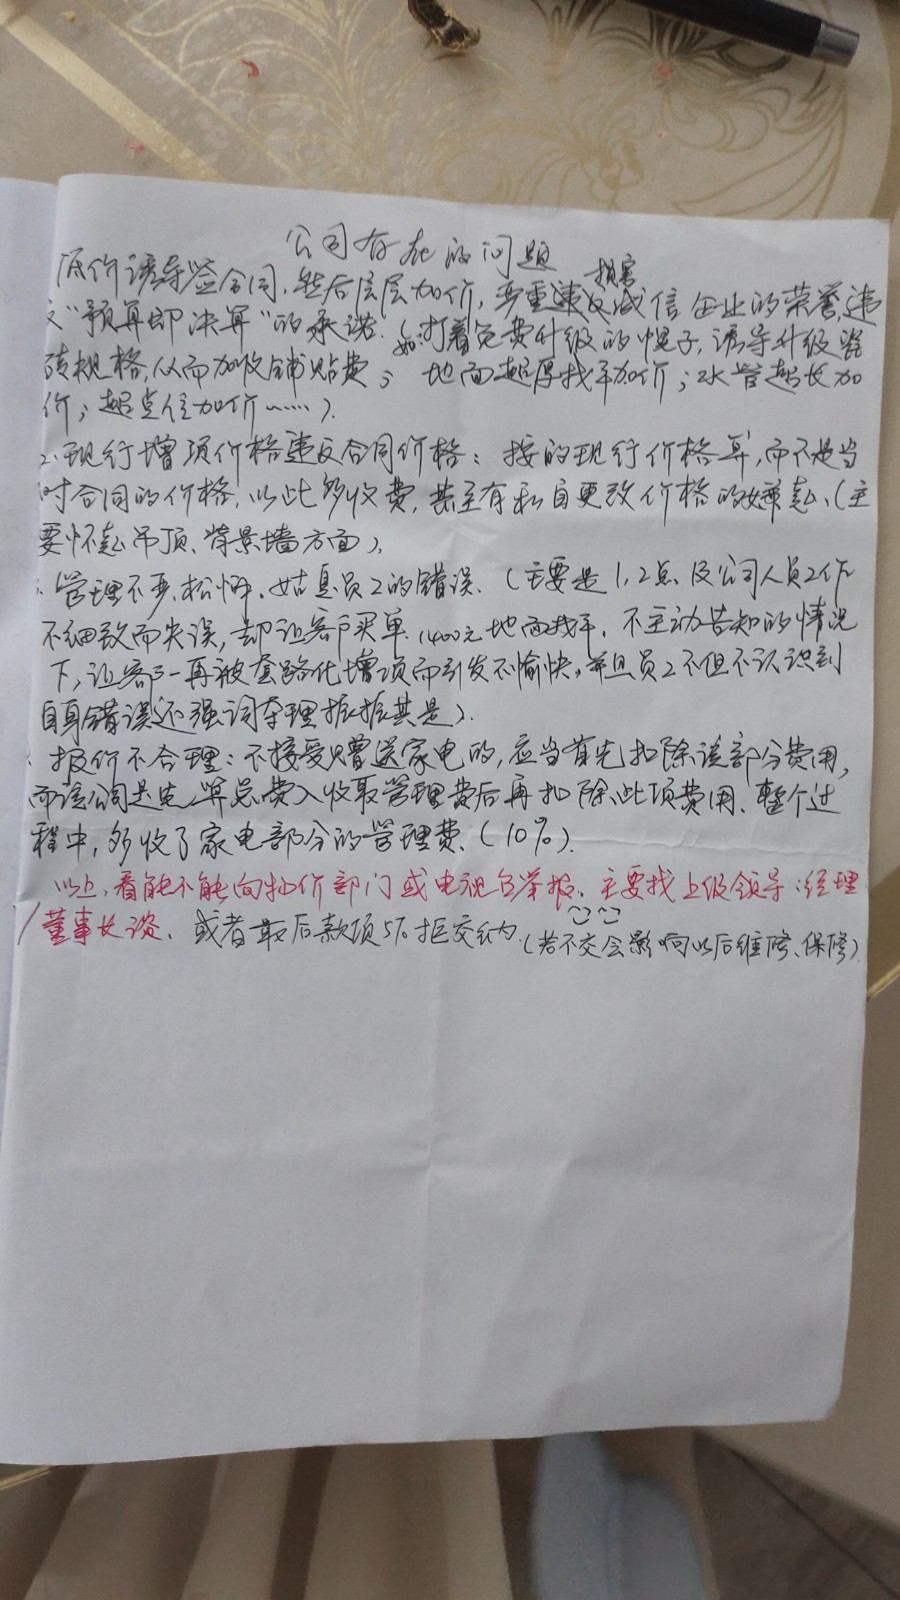 公司存在的问题
损害
底价诱导签合同,然后层层加价,严重违反诚信企业的荣誉,违
反“预算即决算”的承诺.(如:打着免费升级的幌子,诱导升级瓷
砖规格,从而加收铺贴费;地面超厚找平加价;水管超长加
价;超点位加价……).
2.现行增项价格违反合同价格:按的现行价格算,而不是当
时合同的价格,以此多收费,甚至有私自更改价格的嫌疑、(主
要怀疑吊顶、背景墙方面).
管理不严、松懈、姑息员工的错误.(主要是1、2点及公司人员工作
不细致而失误,却让客户买单.1400元地面找平,不主动告知的情况
下,让客户一再被套路化增项而引发不愉快,并且员工不但不认识到
自身错误还强词夺理振振其是).
报价不合理:不接受赠送家电的,应当首先扣除该部分费用,
而该公司是先算总费入收取管理费后再扣除此项费用、整个过
程中,多收了家电部分的管理费.(10%).
以上,看能不能向物价部门或电视台举报、主要找上级领导:经理
/董事长谈、或者最后款项5%拒交纳.(若不交会影响以后维修、保修)